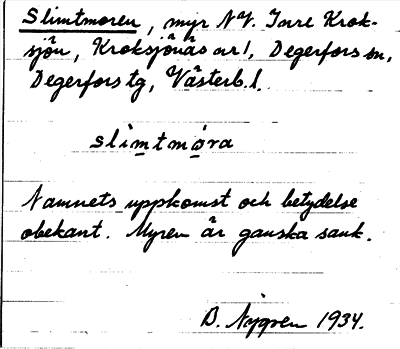 Slimtmoren, myr NV. Inre Krok-
sjön, Kroksjönäs ar 1, Degerfors sn,
Degerfors tg, Västerb. l.
slìmtmo̱ra
Namnets uppkomst och betydelse
obekant. Myren är ganska sank.
B. Nygren 1934.